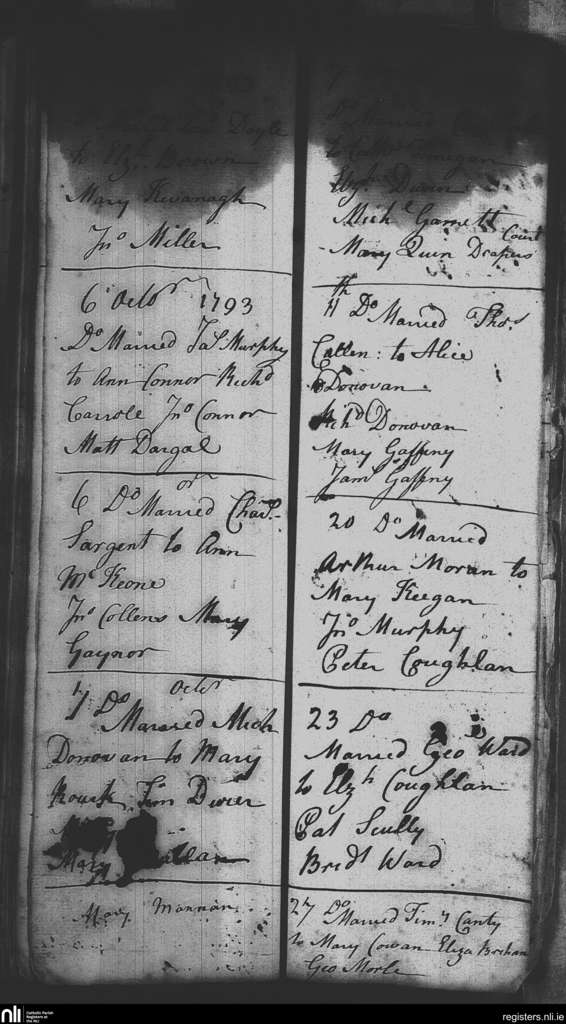 Doyle
to Elzh Brown
Mary Kavanagh
Jno Miller
6 Octobr 1793
Do Married Jas Murphy
to Ann Connor Richd
Carrole Jno Connor
Matt Dargal
6 Do Married Chas
Sargent to Ann
Mc Keone
Jno Collens Mary
Gaynor
7 Do Octr
Married Mich
Donovan to Mary
Rourk Tim Dwier
Mary
Mary Mannan
Do Married
Elzh Dwier
Michl Garnett
Mary Quin Drapers Court
11th Do Married Thos
Callen: to Alice
Donovan
Richd Donovan
Mary Gaffeny
Jams Gaffny
20 Do Married
Arthur Moran to
Mary Keegan
Jno Murphy
Peter Coughlan
23 Do
Married Geo Ward
to Elzh Coughlan
Pat Scully
Bridt Ward
27 Do Married Timy Canty
to Mary Cowan Eliza Brehan
Geo Morle
nli Catholic Parish Registers at the NLI
registers.nli.ie